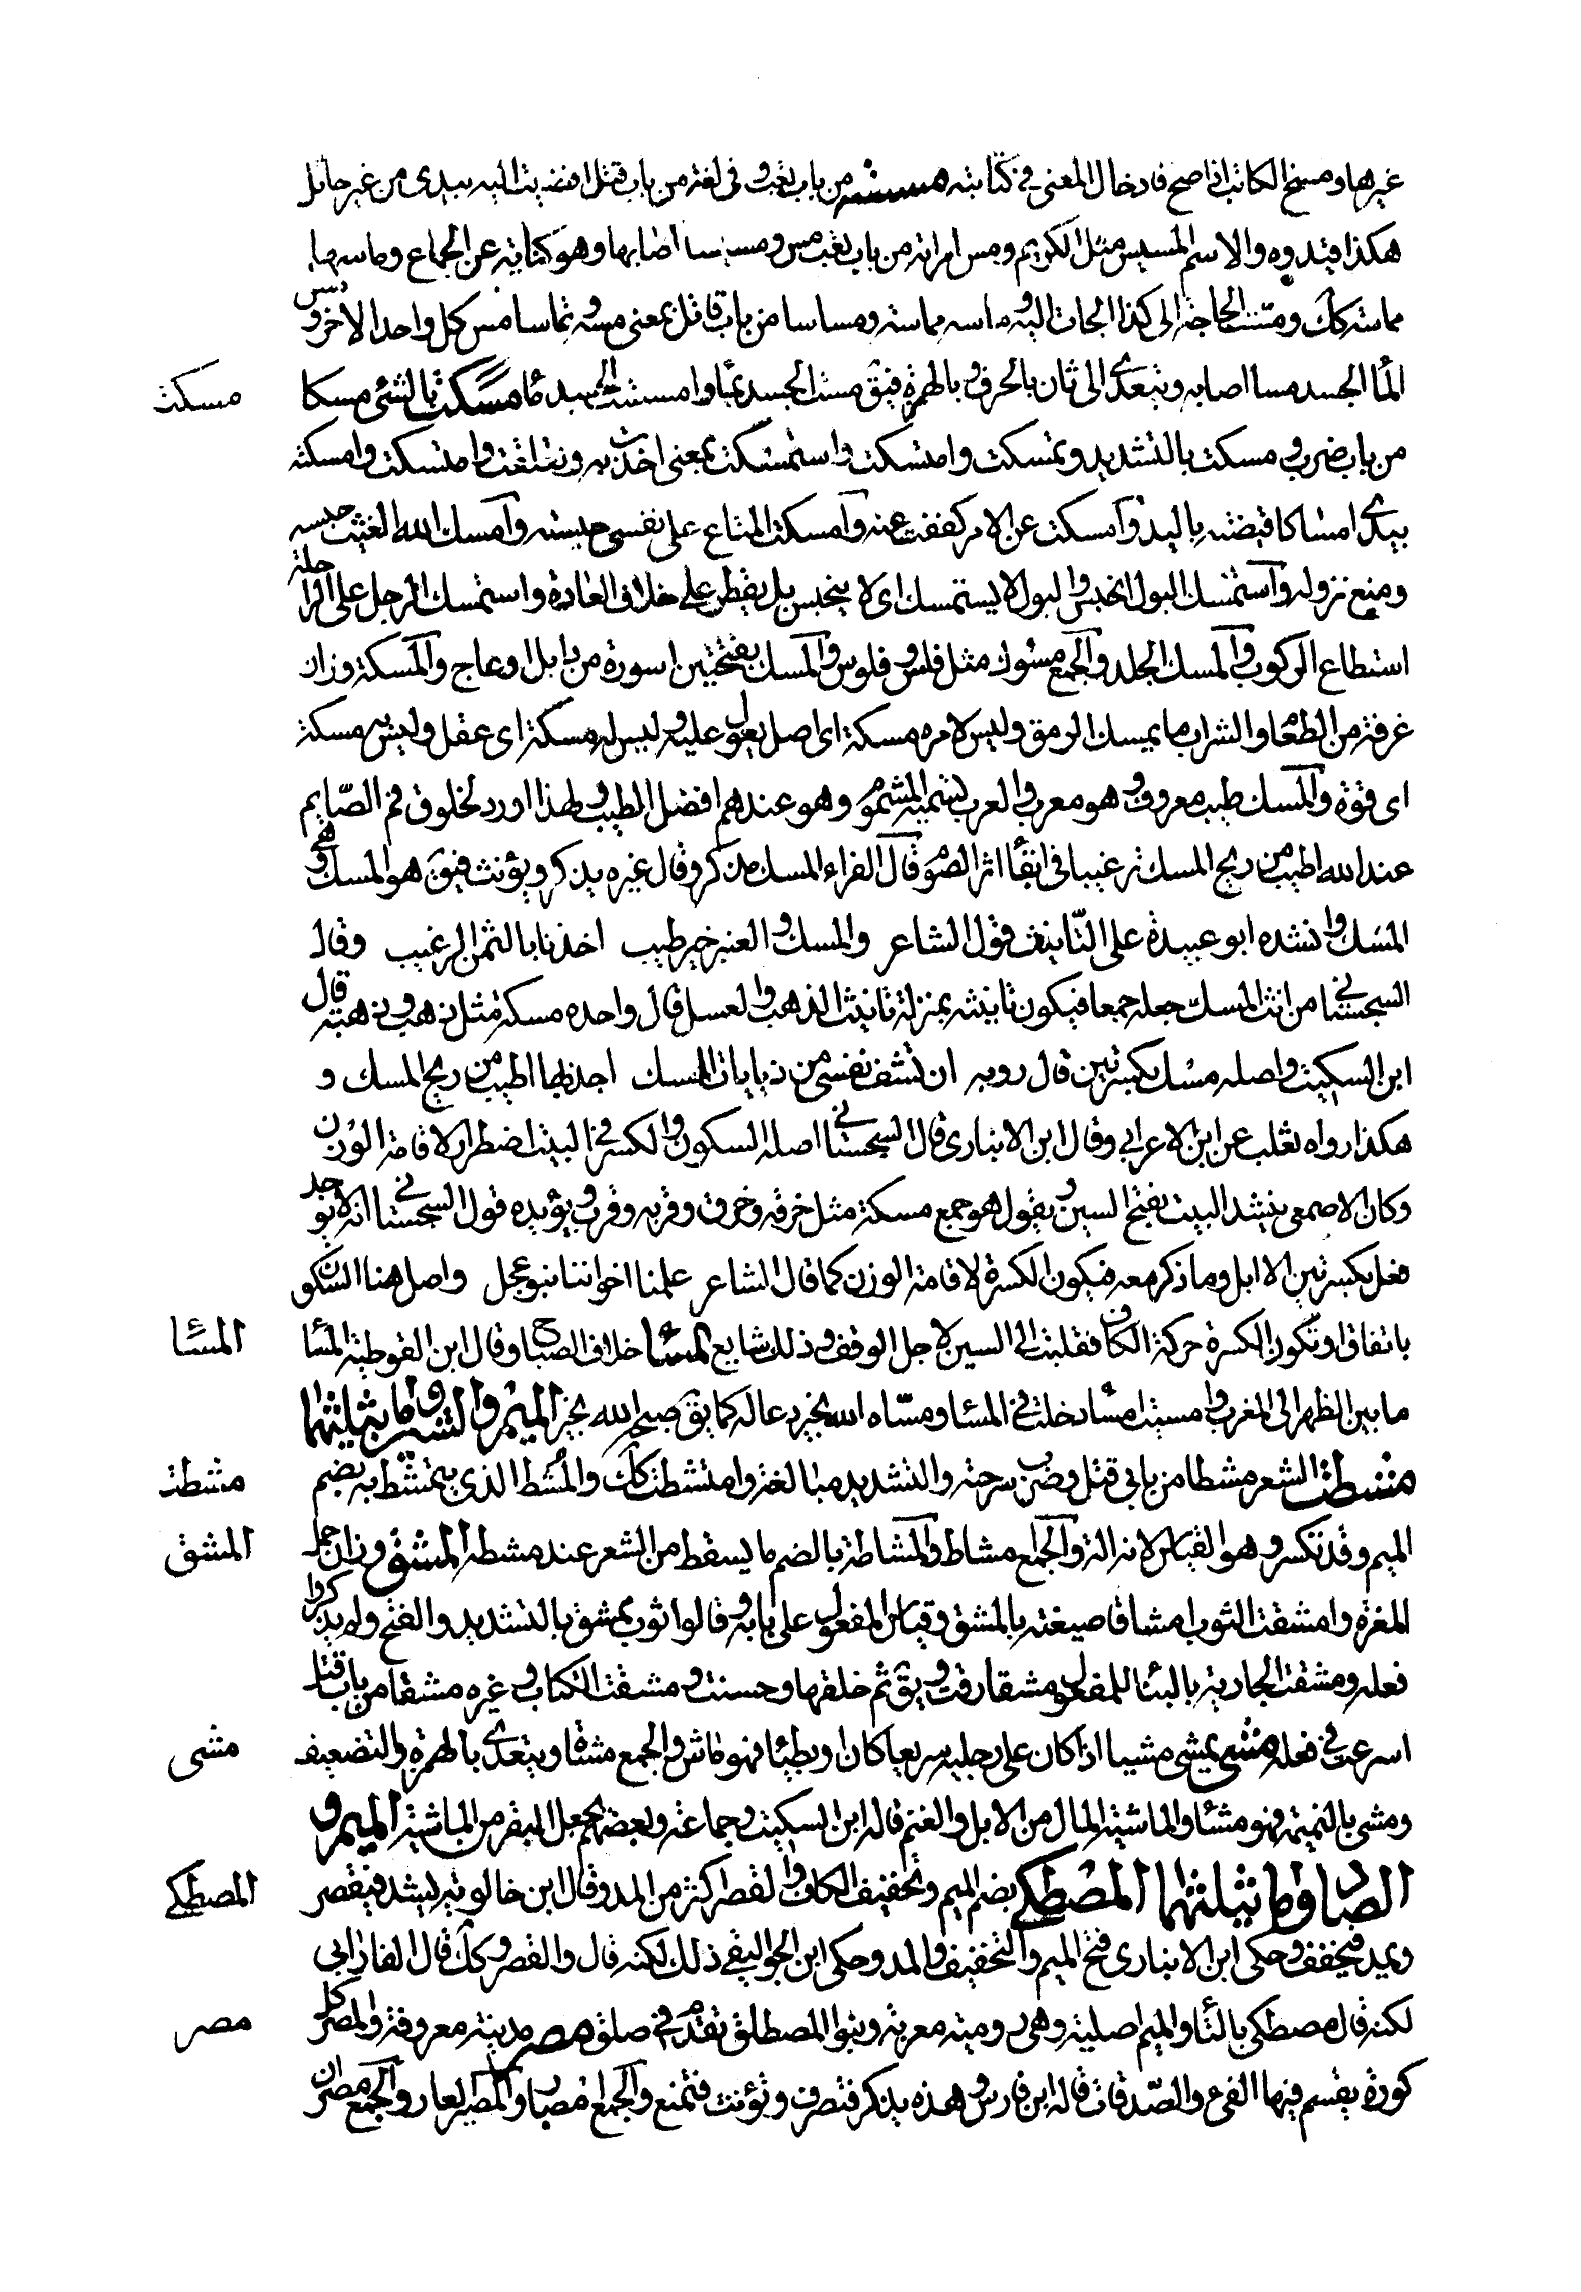 غيرها ومسخ الكاتب اذا صحف فادخال المعنى في كتابته مسسته من باب تعب وفى لغة من باب قتل افضيت اليه بيدى من غير حايل
هكذا قيدوه والاسم المسيس مثل الكريم ومس امراته من باب تعب مس ومسيسا اصابها وهو كناية عن الجماع وماسها
مماسة كك ومست الحاجة الى كذا الجات اليه وماسه مماسة ومساسا من باب قاتل بمعنى مسه وتماسا مس كل واحد الاخر ومس
الماء الجسد مسا اصابه ويتعدى الى ثان بالحرف وبالهمزة فيق مسست الجسد بماء وامسست الجسد ماء مسكت بالشئ مسكا
مسكت
من باب ضرب ومسكت بالتشديد وتمسكت وامتسكت واستمسكت بمعنى اخذت به وتعلقت وامتسكت وامسكته
بيدى امساكا قبضته باليد وامسكت عن الامر كففت عنه وامسكت المتاع على نفسى حبسته وامسك الله الغيث حبسه
ومنع نزوله واستمسك البول انحبس والبول لا يستمسك اى لا ينحبس بل يقطر على خلاف العادة واستمسك الرجل على الراحلة
استطاع الركوب والمسك الجلد والجمع مسوك مثل فلس وفلوس والمسك بفتحتين اسورة من ذبل او عاج والمسكة وزان
غرفة من الطعام والشراب ما يمسك الرمق وليس لامره مسكة اى اصل يعول عليه وليس له مسكة اى عقل وليس به مسكة
اى قوة والمسك طيب معروف وهو معرب والعرب تسميه المشموم وهو عندهم افضل الطيب ولهذا اورد لخلوف فم الصايم
عند الله اطيب من ريح المسك ترغيبا فى ابقاء اثر الصوم قال الفراء المسك مذكر وقال غيره يذكر ويؤنث فيق هو المسك وهى
المسك وانشده ابو عبيدة على التانيث قول الشاعر والمسك والعنبر خير طيب اخذنا بالثمن الرغيب وقال
السجستانى من انث المسك جعله جمعا فيكون تانيثه بمنزلة تانيث الذهب والعسل قال واحده مسكة مثل ذهب وذهبة قال
ابن السكيت واصله مسك بكسرتين قال روبه ان تشف نفسى من ذبابات المسك اجد بها اطيب من ريح المسك و
هكذا رواه ثعلب عن ابن الاعرابى وقال ابن الانبارى قال السجستانى اصله السكون والكسر فى البيت اضطرار لاقامة الوزن
وكان الاصمعى ينشد البيت بفتح السين ويقول هو جمع مسكة مثل خرقة وخرق وقربه وقرب ويؤيده قول السجستانى انه لا يوجد
فعل بكسرتين الا ابل وما ذكر معه فيكون الكسرة لاقامة الوزن كما قال الشاعر علمنا اخواننا بنو عجل واصل هنا السكون
باتفاق او تكون الكسرة حركة الكاف فقلبت الى السين لاجل الوقف وذلك شايع المساء خلاف الصباح وقال ابن القوطية المساء
المساء
ما بين الظهر الى المغرب وامسيت امساء دخلت فى المساء ومساه الله بخير دعا له كما يق صبحه الله بخير الميم والشين وما يثلثهما
مشطت الشعر مشطا من بابى قتل وضرب سرحته والتشديد مبالغة وامتشطت كك والمشط الذى يتمشط به بضم
مشطت
الميم وقد تكسر وهو القياس لانه الة والجمع امشاط والمشاطة بالضم ما يسقط من الشعر عند مشطه المشق وزان حمل
المشق
المغرة وامشقت الثوب امشاقا صبغته بالمشق وقياس المفعول على بابه وقالوا ثوب ممشق بالتشديد والفتح ولم يذكروا
فعله ومشقت الجارية بالبناء للمفعول مشقا رقت ويق تم خلقها وحسنت ومشقت الكتاب وغيره مشقا من باب قتل
اسرعت فى فعله مشى يمشى مشيا اذا كان على رجليه سريعا كان او بطيئا فهو ماش والجمع مشاة ويتعدى بالهمزة والتضعيف
مشى
ومشى بالنميمة فهو مشاء والماشية المال من الابل والغنم قاله ابن السكيت وجماعة وبعضهم يجعل البقر من الماشية الميم و
الصاد وما يثلثهما المصطكى بضم الميم وتخفيف الكاف والقصر اكثر من المد وقال ابن خالويه يشدد فيقصر
المصطكى
ويمد فيخفف وحكى ابن الانبارى فتح الميم والتخفيف والمد وحكى ابن الجواليقى ذلك لكنه قال والقصر وكك قال الفارابى
لكنه قال مصطكى بالتاء والميم اصلية وهى رومية معربة وبنوا المصطلق تقدم فى صلق مصر مدينة معروفة والمصر كل
مصر
كورة يقسم فيها الفئ والصدقات قاله ابن فارس وهذه يذكر فتصرف وتؤنث فتمنع والجمع امصار والمصير المعاء والجمع مصران